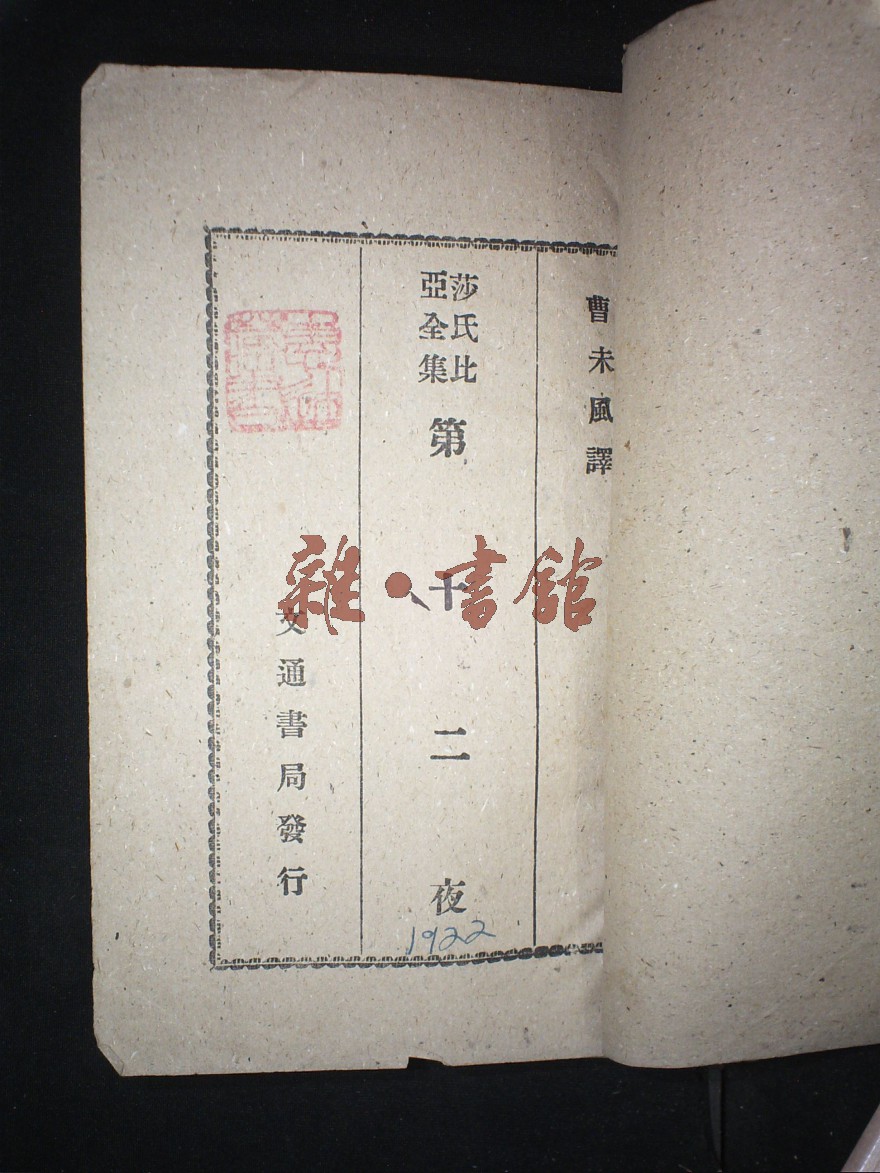 曹未風譯
莎氏比
亞全集
第十二夜
1922
文通書局發行
雜·書館